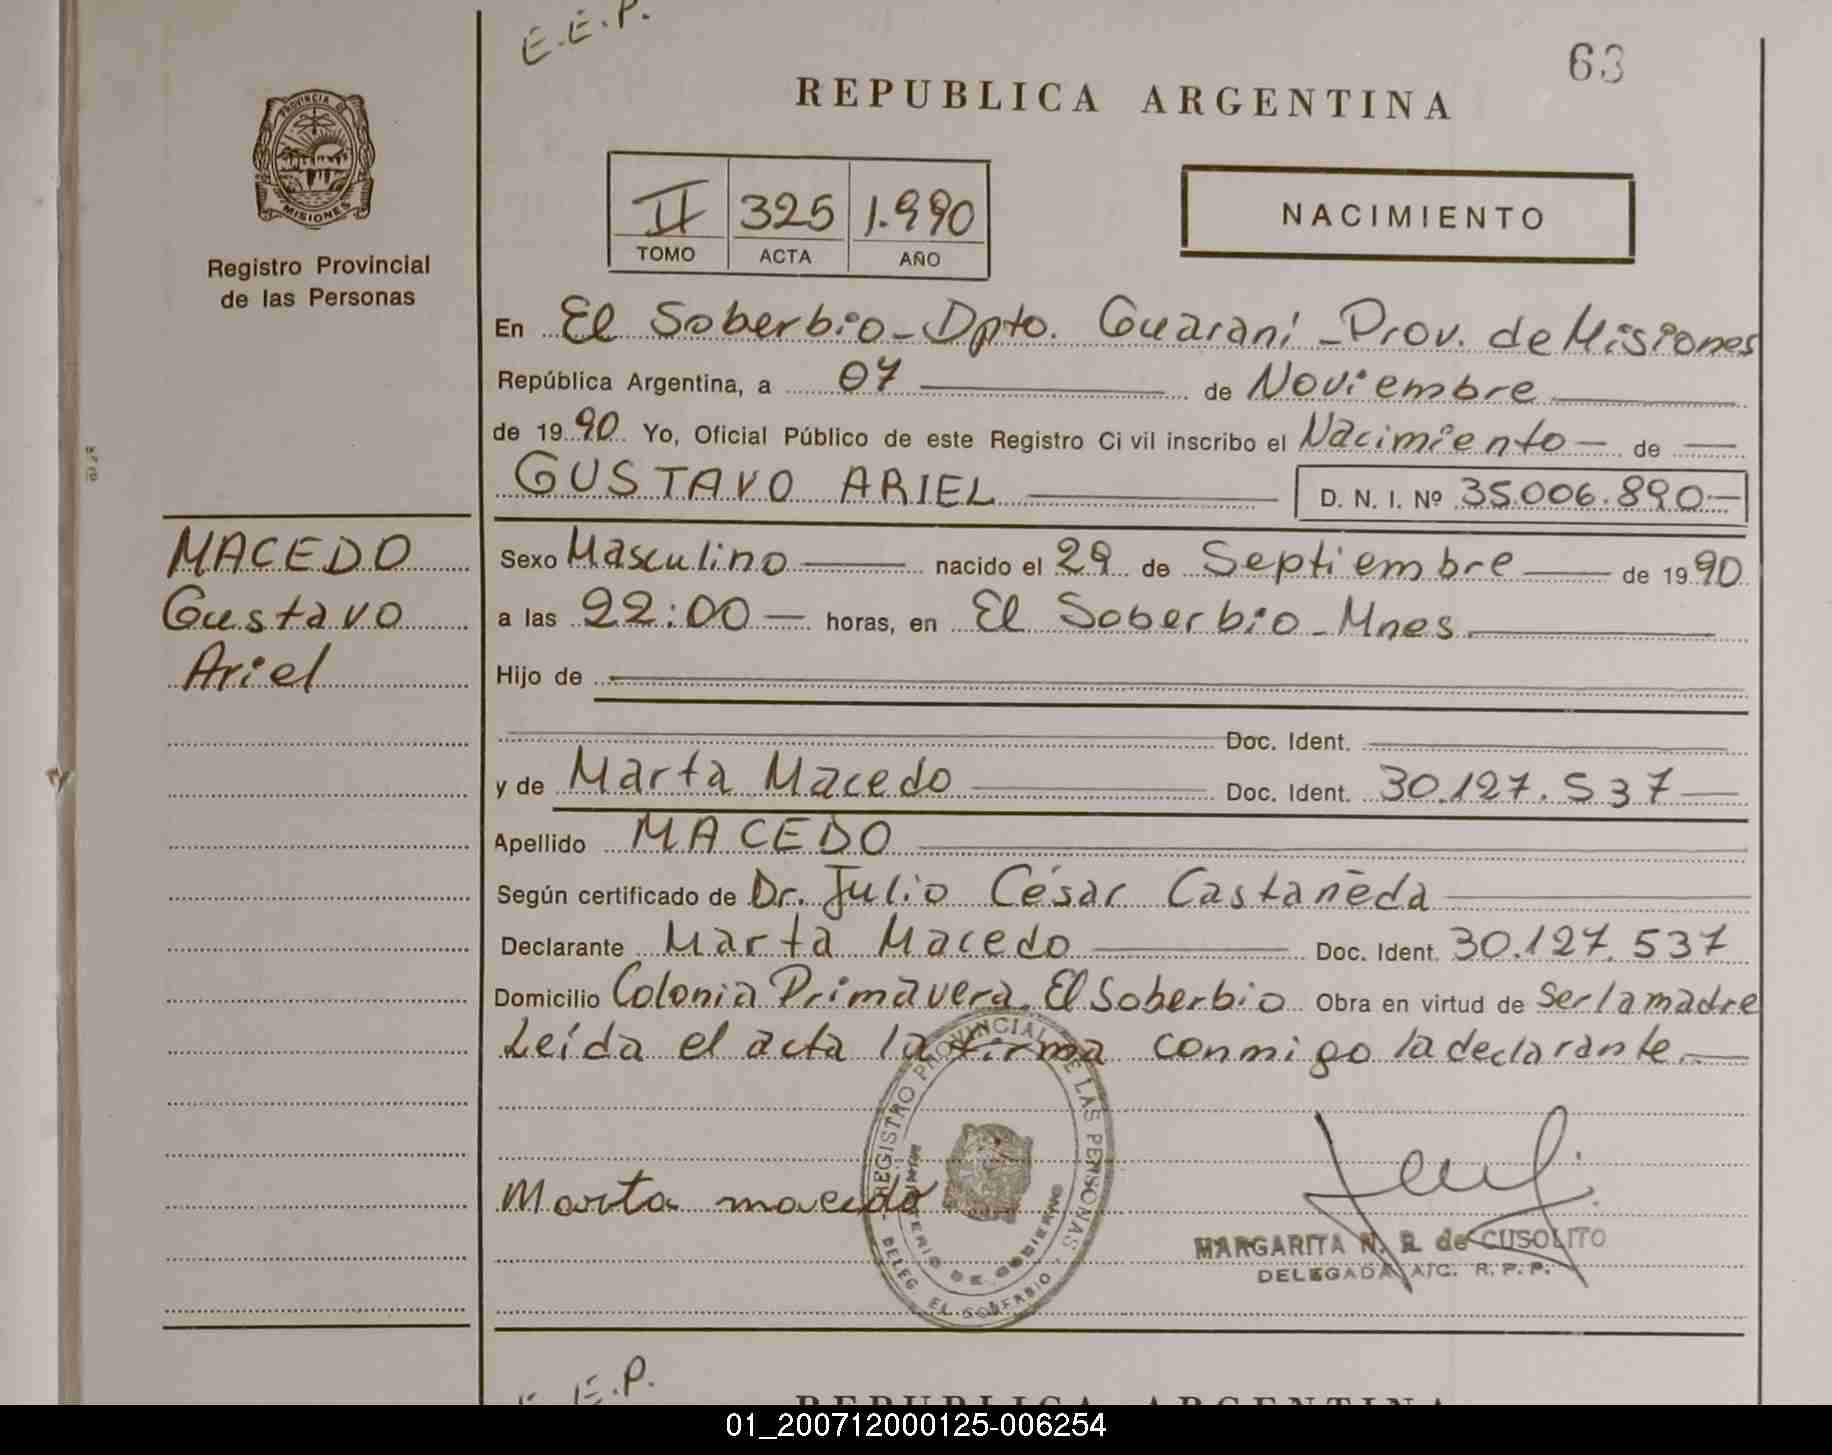 E.E.P.
63
REPUBLICA ARGENTINA
PROVINCIA DE
MISIONES
Registro Provincial
de las Personas
II 325 1.990
TOMO ACTA AÑO
NACIMIENTO
En El Soberbio - Dpto. Guaraní - Prov. de Misiones
República Argentina, a 07 de Noviembre
de 1990 Yo, Oficial Público de este Registro Ci vil inscribo el Nacimiento de
GUSTAVO ARIEL D. N. I. Nº 35.006.890
MACEDO
Gustavo
Ariel
Sexo Masculino nacido el 29 de Septiembre de 1990
a las 22:00 horas, en El Soberbio - Mnes.
Hijo de
Doc. Ident.
y de Marta Macedo Doc. Ident. 30.127.537
Apellido MACEDO
Según certificado de Dr. Julio César Castañeda
Declarante Marta Macedo Doc. Ident. 30.127.537
Domicilio Colonia Primavera, El Soberbio Obra en virtud de Ser la madre
Leída el acta la firma conmigo la declarante.
REGISTRO PROVINCIAL DE LAS PERSONAS
DE GOBIERNO
DELEG. EL SOBERBIO
Marta macedo
MARGARITA N. R. de CUSOLITO
DELEGADA R.P.P.
E.E.P.
REPUBLICA ARGENTINA
01_200712000125-006254